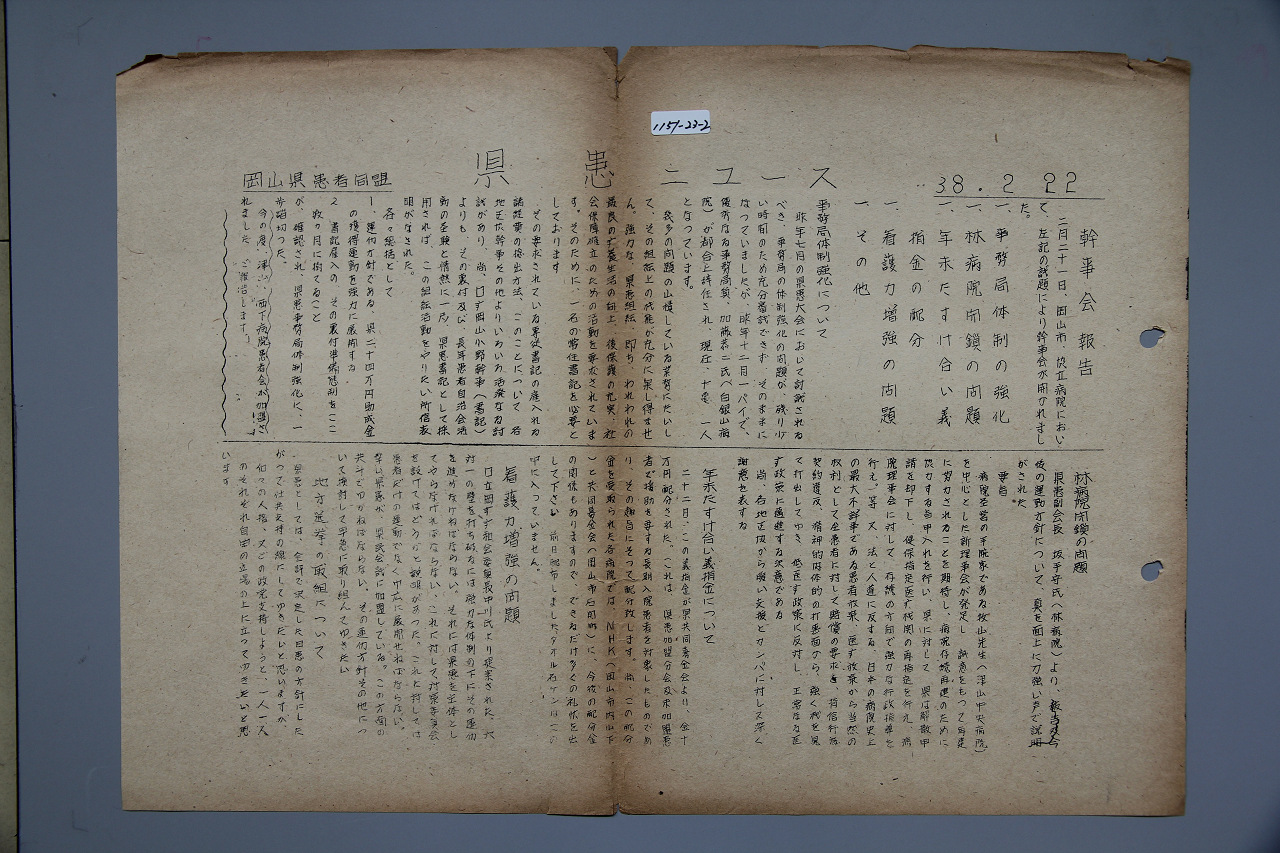 1151-23-2
県患ニュース
38.2 22
岡山県患者同盟
幹事会報告
二月二十一日、岡山市、協立病院におい
て、左記の議題により幹事会が開かれまし
た。
一、事務局体制の強化
一、林病院閉鎖の問題
一、年末たすけ合い義
捐金の配分
一、看護力増強の問題
一、その他
事務局体制強化について
昨年七月の県患大会において討議される
べき、事務局の体制強化の問題が、残り少
い時間のため充分審議できず、そのままに
なつていましたが、昨年十二月一パイで、
優秀なる事務局員、加藤恭二氏(白銀山病
院)が都合上辞任され、現在、十患、一人
となつています。
数多の問題の山積している業務にたいし
て、その組織上の機能が充分に果し得ませ
ん。強力な、県患組織、即ち、われわれの
最良の療養生活の向上、後保護の充実、社
会保障確立のための活動を要求されていま
す。そのために、一名の常任書記を必要と
しております
その要求されている専従書記の雇入れる
諸経費の捻出方法、このことについて 各
地区代幹事その他よりいろいろ活発なる討
議があり、尚、日ず岡山小野幹事(書記)
よりも、その裏付及び、長年患者自治会活
動の経験と情熱に一応、県患書記として採
用されれば、この組織活動をやりたい所信表
明がなされた。
各々総括として
1、運動方針である、県二十四万円助成金
の獲得運動を強力に展開する
2、書記雇入の、その裏付準備態制をここ
数ヶ月に樹てること
が、確認され、県患事務局体制強化に、一
歩踏切つた。
今の度、津山、西下病院患者会が加盟さ
れました ご報告します!
林病院閉鎖の問題
県患副会長 坂手守氏(林病院)より、報告及今
後の運動方針について、真を面上に力強い声で説明
がされた
要旨
病院経営の手院家である牧山先生(津山中央病院)
を中心とした新理事会が発足し、誠意をもつて再建
に努力されることを期待し、病院存続再建のために
協力する旨申入れを行い、県に対して、県は解散申
請を却下し、健保指定医療機関の再指定を行え、病
院理事会に対して、存続の方向で強力な行政指導を
行え。等、又、法と人道に反する、日本の病院史上
の最大不祥事である患者放棄、医療放棄から当然の
権利として全患者に対して賠償の要求を、背信行為
契約違反、精神的肉体的の打患面から、強く我を見
て打出してゆき、低医療政策に反対し、正常なる医
療政策に邁進する決意である
尚、各地区披から暖い支援とカンパに対して深く
謝意を表する
年末たすけ合い義捐金について
二十二日、この義捐金が県共同募金会より、金十
万円配分された。これは、県患加盟分会及未加盟患
者で援助を要する長期入院患者を対象したものであ
り、その趣旨にそつて配分致します。尚、この配分
金を受取られた各病院では、NHK(岡山市内山下
)と共同募金会(岡山市石関町)に、今後の配分金
の関係もありますので、できるだけ多くの礼状を出
して下さい 前日配布しましたタオル石ケンはこの
中に入つていません。
看護力増強の問題
日立岡ず社会委員長中川氏より提案された、六
対一の壁を打ち破るには強力な体制の下にその運動
を進めなければならない。それには県患を主体とし
てやらなければならない、これに対して対策委員会
を設けてはどうかと説明があつた。これに対しては
患者だけの運動でなく巾広に展開せねばならない。
幸い県患が、県民会議に加盟している。この方面の
共斗でゆかねばならない。その運動方針その他につ
いて検討して早急に取り組んでゆきたい
地方選挙の取組について
県患としては、全評で決定した日患の方針にした
がつて社共支持の線にしてゆきたいと思いますが、
個々の人格、又どの政党支持しようと、一人一人
のそれぞれ自由の立場の上に立つてゆきたいと思
います